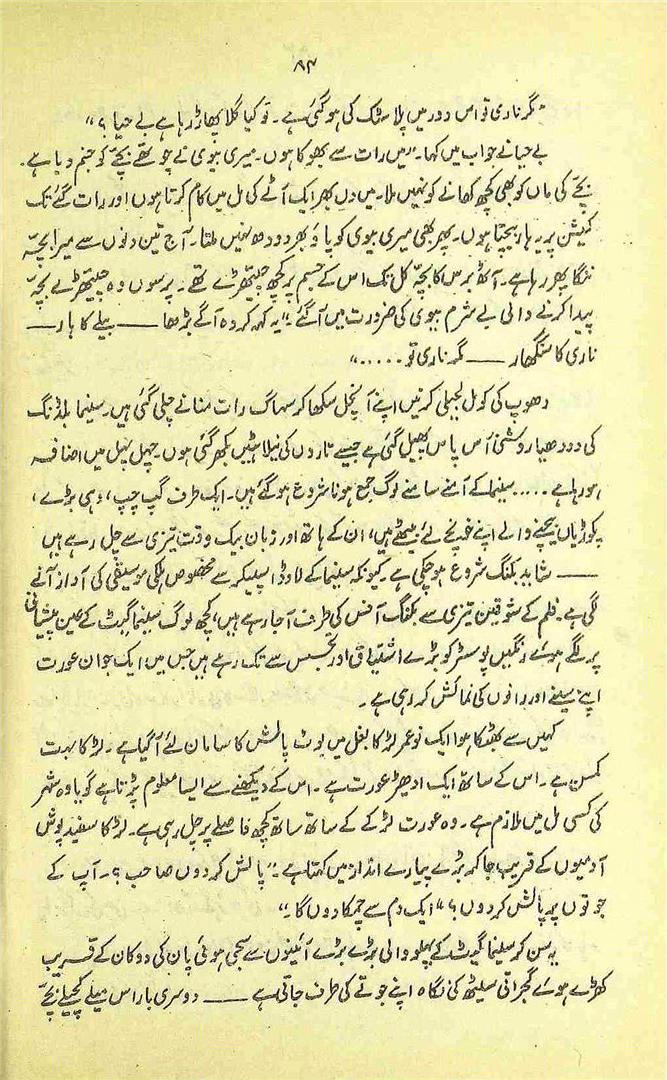 ۸۳
"مگر ناری تو اس دور میں پلاسٹک کی ہو گئی ہے۔ تو کیا گلا پھاڑ رہا ہے بے حیا؟"
بے حیا نے جواب میں کہا۔ "میں رات سے بھوکا ہوں۔ میری بیوی نے چوتھے بچّے کو جنم دیا ہے۔
بچّے کی ماں کو بھی کچھ کھانے کو نہیں ملا۔ میں دن بھر ایک آٹے کی مل میں کام کرتا ہوں اور رات گئے تک
کمیشن پر یہ ہار بیچتا ہوں۔ پھر بھی میری بیوی کو پاؤ بھر دودھ نہیں ملتا۔ آج تین دنوں سے میرا بچّہ
ننگا پھر رہا ہے۔ آٹھ برس کا بچّہ کل تک اس کے جسم پر کچھ چیتھڑے تھے۔ پرسوں وہ چیتھڑے بچّہ
پیدا کرنے والی بے شرم بیوی کی ضرورت میں آ گئے۔" یہ کہہ کر وہ آگے بڑھا —— بیلے کا ہار ——
ناری کا سنگھار —— مگر ناری تو ....."
دھوپ کی کومل لجیلی کرنیں اپنے آنچل سکھا کر سہاگ رات منانے چلی گئی ہیں۔ سینما بلڈنگ
کی دودھیا روشنی آس پاس پھیل گئی ہے جیسے تاروں کی نیلاہٹیں بکھر گئی ہوں۔ چہل پہل میں اضافہ
ہو رہا ہے ..... سینما کے آمنے سامنے لوگ جمع ہونا شروع ہو گئے ہیں۔ ایک طرف گپ چپ، دہی بڑے،
پکوڑیاں بیچنے والے اپنے خوانچے لئے بیٹھے ہیں، ان کے ہاتھ اور زبان بیک وقت تیزی سے چل رہے ہیں
—— شاید بکنگ شروع ہو چکی ہے۔ کیونکہ سینما کے لاوڈ اسپیکر سے مخصوص ہلکی موسیقی کی آواز آنے
لگی ہے۔ فلم کے شوقین تیزی سے بکنگ آفس کی طرف آ جا رہے ہیں، کچھ لوگ سینما گیٹ کے عین پیشانی
پر لگے ہوئے رنگین پوسٹر کو بڑے اشتیاق اور تجسس سے تک رہے ہیں جس میں ایک جوان عورت
اپنے سینے اور رانوں کی نمائش کر رہی ہے۔
کہیں سے بھٹکا ہوا ایک نو عمر لڑکا بغل میں بوٹ پالش کا سامان لئے آ گیا ہے۔ لڑکا بہت
کمسن ہے۔ اس کے ساتھ ایک ادھیڑ عورت ہے۔ اس کے دیکھنے سے ایسا معلوم پڑتا ہے گویا وہ شہر
کی کسی مل میں ملازم ہے۔ وہ عورت لڑکے کے ساتھ ساتھ کچھ فاصلے پر چل رہی ہے۔ لڑکا سفید پوش
آدمیوں کے قریب جا کر بڑے پیارے انداز میں کہتا ہے۔ "پالش کر دوں صاحب؟۔ آپ کے
جوتوں پر پالش کر دوں؟" "ایک دم سے چمکا دوں گا۔"
یہ سن کر سینما گیٹ کے پہلو والی بڑے بڑے آئینوں سے سجی ہوئی پان کی دوکان کے قریب
کھڑے ہوئے گجراتی سیٹھ کی نگاہ اپنے جوتے کی طرف جاتی ہے —— دوسری بار اس میلے کچیلے بچّے